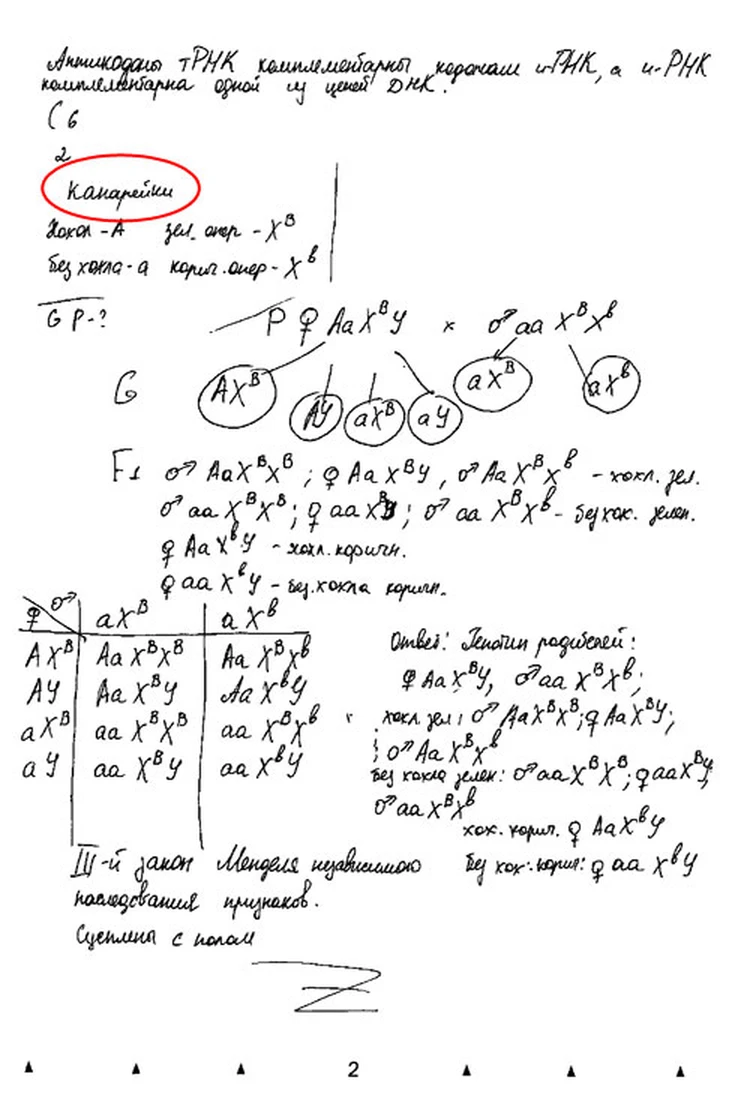 Антикодоны тРНК комплементарны кодонам и-РНК, а и-РНК
комплементарна одной из цепей ДНК.
С 6
2
Канарейки
Хохол - А зел. опер - X^B
без хохла - а корич. опер - X^b
G P - ?
P ♀ AaX^BY × ♂ aa X^BX^b
G AX^B AY aX^B aY aX^B aX^b
F1 ♂ AaX^BX^B ; ♀ AaX^BY , ♂ AaX^BX^b - хохл. зел.
♂ aa X^BX^B ; ♀ aaX^BY ; ♂ aa X^BX^b - без хох. зелен.
♀ AaX^bY - хохл. коричн.
♀ aa X^bY - без. хохла коричн.
♀ ♂ aX^B aX^b
AX^B AaX^BX^B Aa X^BX^b
AY AaX^BY AaX^bY
aX^B aa X^BX^B aa X^BX^b
aY aa X^BY aa X^bY
Ответ: Генотип родителей:
♀ AaX^BY, ♂ aa X^BX^b;
хохл зел: ♂ AaX^BX^B; ♀ AaX^BY;
; ♂ AaX^BX^b
без хохла зелен: ♂ aaX^BX^B; ♀ aaX^BY;
♂ aaX^BX^b
хох. корич. ♀ AaX^bY
без хох. корич: ♀ aa X^bY
III-й закон Менделя независимого
наследования признаков.
Сцеплены с полом
Z
2